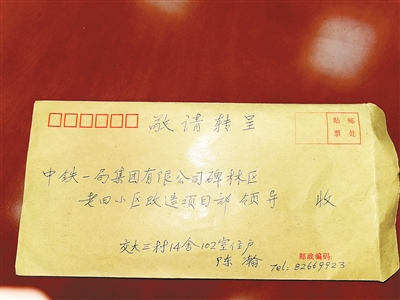 敬请转呈
贴邮
票处
中铁一局集团有限公司碑林区
老旧小区改造项目部领导 收
交大三村14舍102室住户
陈瀚
邮政编码:
Tel: 82669923